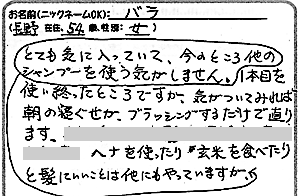 お名前(ニックネームOK): バラ
(長野 在住、54 歳、性別: 女 )
とても気に入っていて、今のところ他の
シャンプーを使う気がしません。1本目を
使い終ったところですが、気がついてみれば
朝の寝ぐせが、ブラッシングするだけで直り
ます。
ヘナを使ったり玄米を食べたり
と髪にいいことは他にもやっていますが